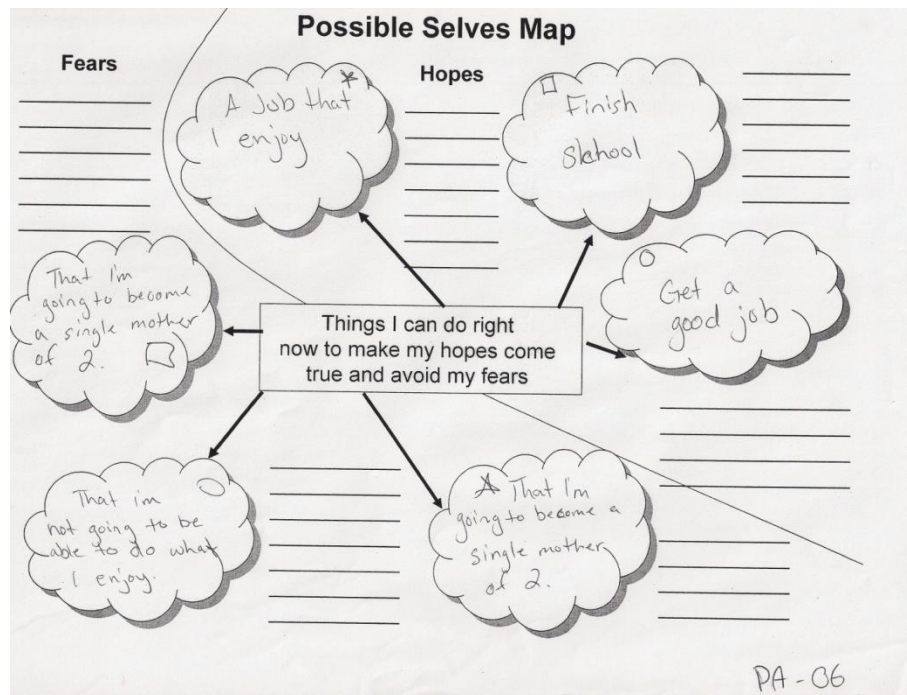 Possible Selves Map
Fears
Hopes
A Job that
I enjoy
Finish
Skhool
Get a
good job
That I'm
going to become
a single mother
of 2.
Things I can do right
now to make my hopes come
true and avoid my fears
That im
not going to be
able to do what
I enjoy.
That I'm
going to become a
single mother
of 2.
PA-06